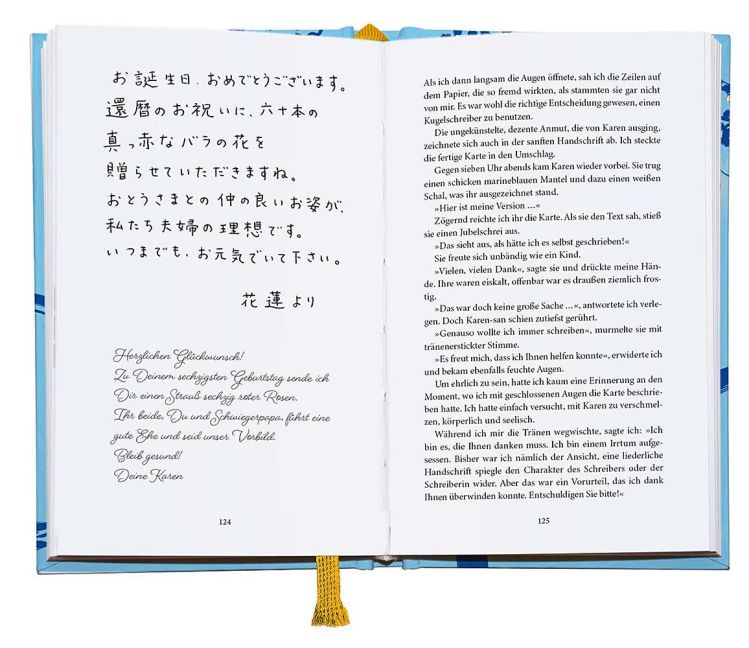 お誕生日、おめでとうございます。
還暦のお祝いに、六十本の
真っ赤なバラの花を
贈らせていただきますね。
おとうさまとの仲の良いお姿が、
私たち夫婦の理想です。
いつまでも、お元気でいて下さい。
花蓮より
Herzlichen Glückwunsch!
Zu Deinem sechzigsten Geburtstag sende ich
Dir einen Strauß sechzig roter Rosen.
Ihr beide, Du und Schwiegerpapa, führt eine
gute Ehe und seid unser Vorbild.
Bleib gesund!
Deine Karen
124
Als ich dann langsam die Augen öffnete, sah ich die Zeilen auf
dem Papier, die so fremd wirkten, als stammten sie gar nicht
von mir. Es war wohl die richtige Entscheidung gewesen, einen
Kugelschreiber zu benutzen.
Die ungekünstelte, dezente Anmut, die von Karen ausging,
zeichnete sich auch in der sanften Handschrift ab. Ich steckte
die fertige Karte in den Umschlag.
Gegen sieben Uhr abends kam Karen wieder vorbei. Sie trug
einen schicken marineblauen Mantel und dazu einen weißen
Schal, was ihr ausgezeichnet stand.
»Hier ist meine Version …«
Zögernd reichte ich ihr die Karte. Als sie den Text sah, stieß
sie einen Jubelschrei aus.
»Das sieht aus, als hätte ich es selbst geschrieben!«
Sie freute sich unbändig wie ein Kind.
»Vielen, vielen Dank«, sagte sie und drückte meine Hän-
de. Ihre waren eiskalt, offenbar war es draußen ziemlich fros-
tig.
»Das war doch keine große Sache …«, antwortete ich verle-
gen. Doch Karen-san schien zutiefst gerührt.
»Genauso wollte ich immer schreiben«, murmelte sie mit
tränenerstickter Stimme.
»Es freut mich, dass ich Ihnen helfen konnte«, erwiderte ich
und bekam ebenfalls feuchte Augen.
Um ehrlich zu sein, hatte ich kaum eine Erinnerung an den
Moment, wo ich mit geschlossenen Augen die Karte beschrie-
ben hatte. Ich hatte einfach versucht, mit Karen zu verschmel-
zen, körperlich und seelisch.
Während ich mir die Tränen wegwischte, sagte ich: »Ich
bin es, die Ihnen danken muss. Ich bin einem Irrtum aufge-
sessen. Bisher war ich nämlich der Ansicht, eine liederliche
Handschrift spiegle den Charakter des Schreibers oder der
Schreiberin wider. Aber das war ein Vorurteil, das ich dank
Ihnen überwinden konnte. Entschuldigen Sie bitte!«
125